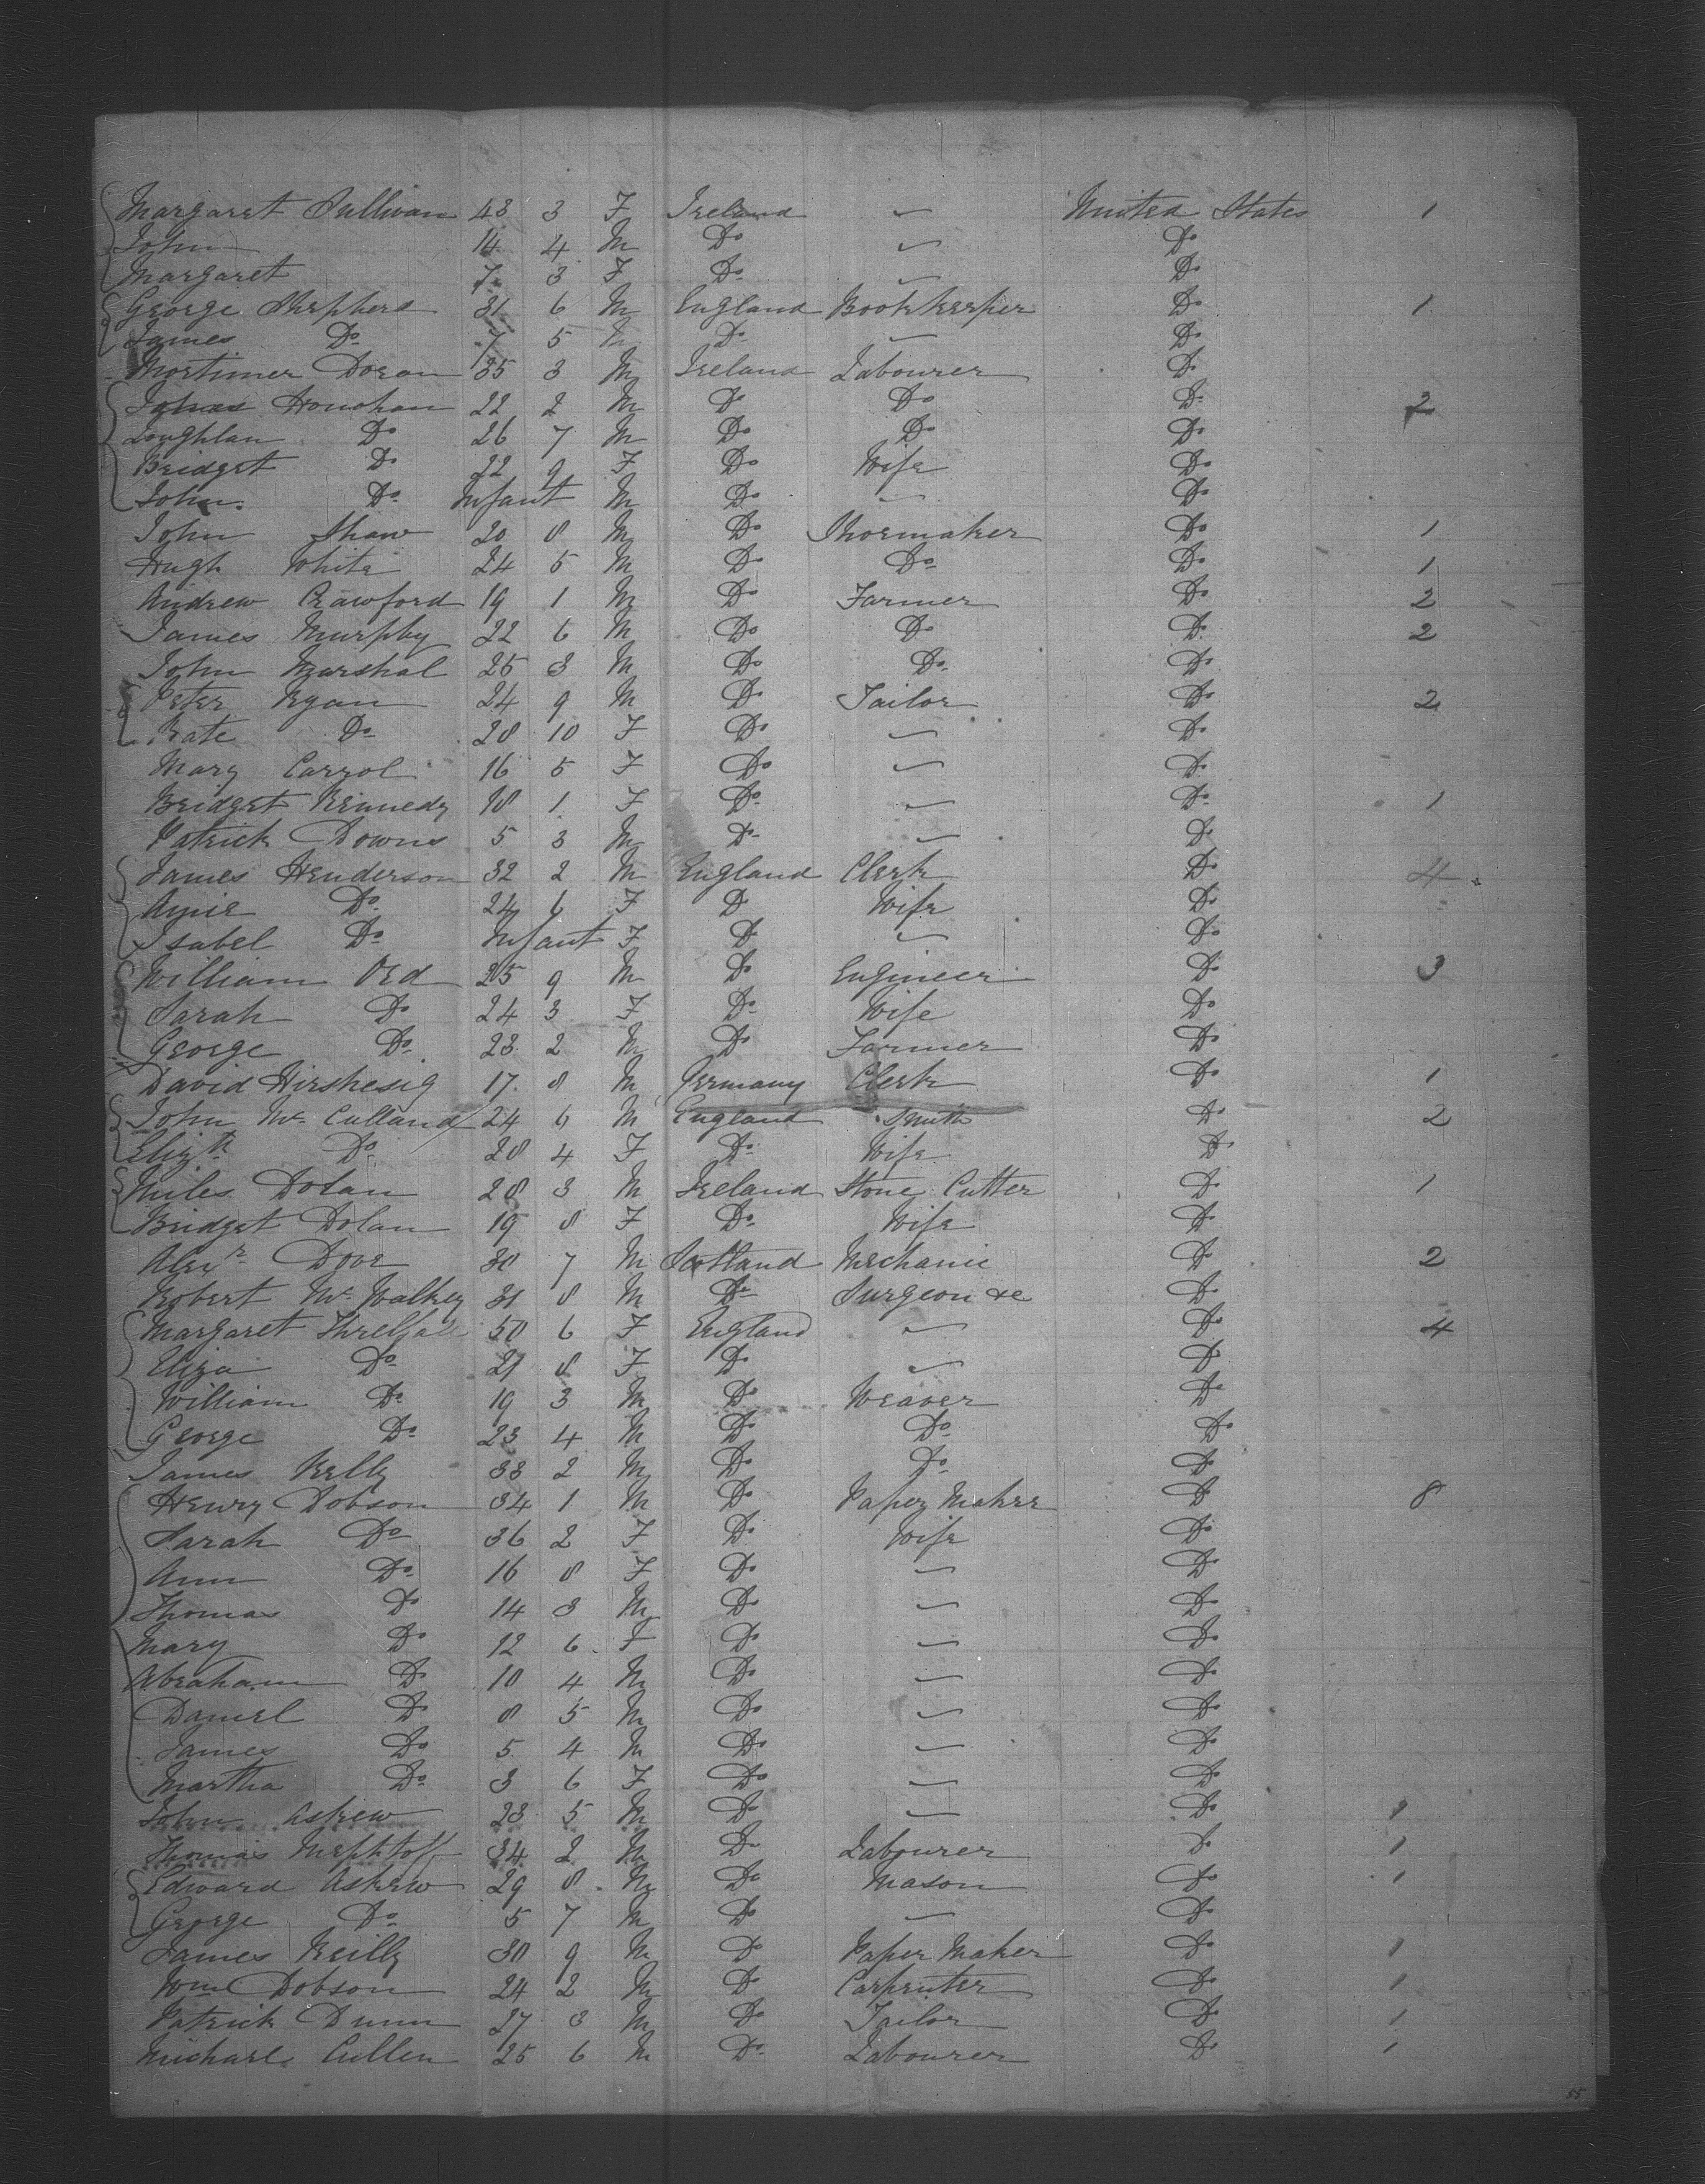 Margaret Sullivan 43 3 F Ireland — United States 1
John 14 4 M Do — Do
Margaret 7 3 F Do — Do
George Shepherd 31 6 M England Bookkeeper Do 1
James Do 7 5 M Do — Do
Mortimer Doran 35 3 M Ireland Labourer Do
Honohan 22 2 M Do Do Do 2
Loughlan Do 26 7 M Do Do Do
Bridget Do 22 9 F Do Wife Do
John Do Infant M Do — Do
John Shaw 20 8 M Do Shoemaker Do 1
Hugh White 24 5 M Do Do Do 1
Andrew Crawford 19 1 M Do Farmer Do 2
James Murphy 22 6 M Do Do Do 2
John Marshal 25 3 M Do Do Do
Peter Ryan 24 9 M Do Tailor Do 2
Kate Do 28 10 F Do — Do
Mary Carrol 16 5 F Do — Do
Bridget Kennedy 18 1 F Do — Do 1
Patrick Downs 5 3 M Do — Do
James Henderson 32 2 M England Clerk Do 4
Do 24 6 F Do Wife Do
Isabel Do Infant F Do — Do
William Ord 25 9 M Do Engineer Do 3
Sarah Do 24 3 F Do Wife Do
George Do 23 2 M Do Farmer Do
David 17 8 M Germany Clerk Do 1
John Mc Culland 24 6 M England Smith Do 2
Elizth Do 28 4 F Do Wife Do
Miles Dolan 28 3 M Ireland Stone Cutter Do 1
Bridget Dolan 19 8 F Do Wife Do
Alexr Dove 30 7 M Scotland Mechanic Do 2
Robert Mc Walker 31 8 M Do Surgeon &c Do
Margaret Threlfall 50 6 F England — Do 4
Eliza Do 21 8 F Do — Do
William Do 19 3 M Do Weaver Do
George Do 23 4 M Do Do Do
James Kelly 33 2 M Do Do Do
Henry Dobson 34 1 M Do Paper Maker Do 8
Sarah Do 36 2 F Do Wife Do
Ann Do 16 8 F Do — Do
Thomas Do 14 3 M Do — Do
Mary Do 12 6 F Do — Do
Abraham Do 10 4 M Do — Do
Daniel Do 8 5 M Do — Do
James Do 5 4 M Do — Do
Martha Do 3 6 F Do — Do
John Askew 23 5 M Do — Do 1
Thomas 34 2 M Do Labourer Do 1
Edward Askew 29 8 M Do Mason Do 1
George Do 5 7 M Do — Do
James Reilly 30 9 M Do Paper Maker Do 1
Wm Dobson 24 2 M Do Carpenter Do 1
Patrick Dunn 27 3 M Do Tailor Do 1
Michael Cullen 25 6 M Do Labourer Do 1
55